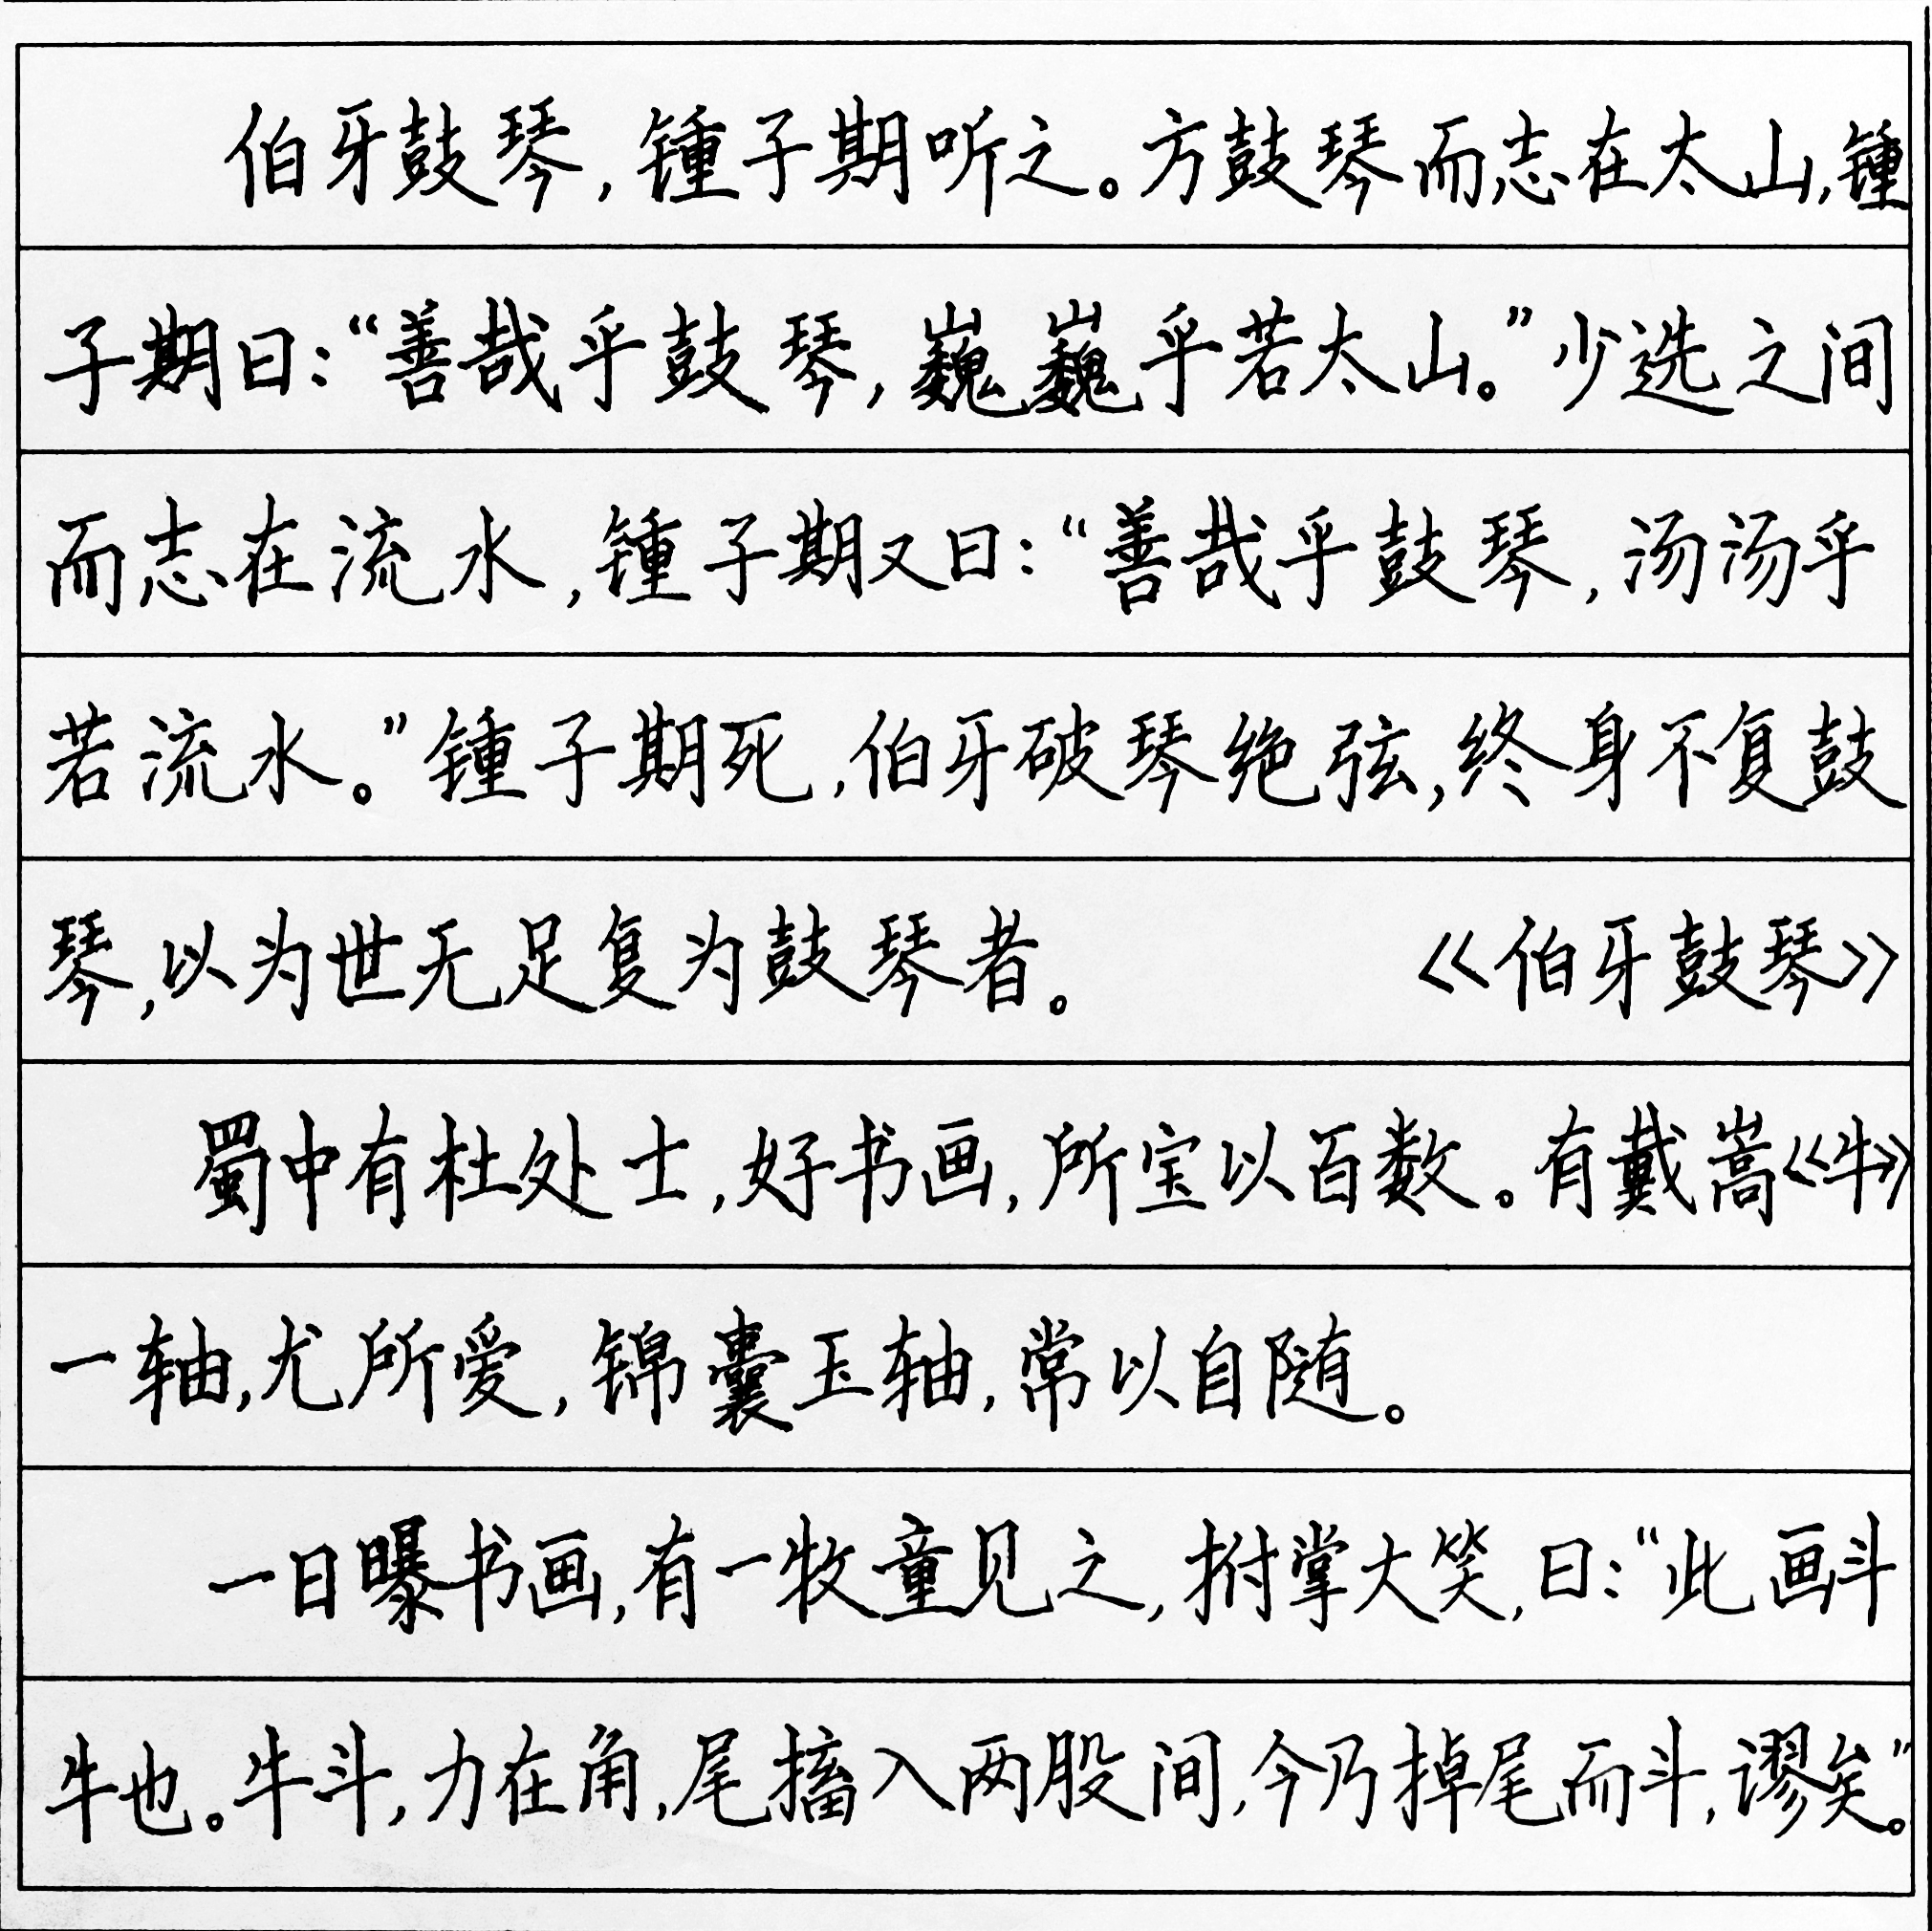 伯牙鼓琴，锺子期听之。方鼓琴而志在太山，锺
子期曰：“善哉乎鼓琴，巍巍乎若太山。”少选之间
而志在流水，锺子期又曰：“善哉乎鼓琴，汤汤乎
若流水。”锺子期死，伯牙破琴绝弦，终身不复鼓
琴，以为世无足复为鼓琴者。 《伯牙鼓琴》
蜀中有杜处士，好书画，所宝以百数。有戴嵩《牛》
一轴，尤所爱，锦囊玉轴，常以自随。
一日曝书画，有一牧童见之，拊掌大笑，曰：“此画斗
牛也。牛斗，力在角，尾搐入两股间，今乃掉尾而斗，谬矣。”